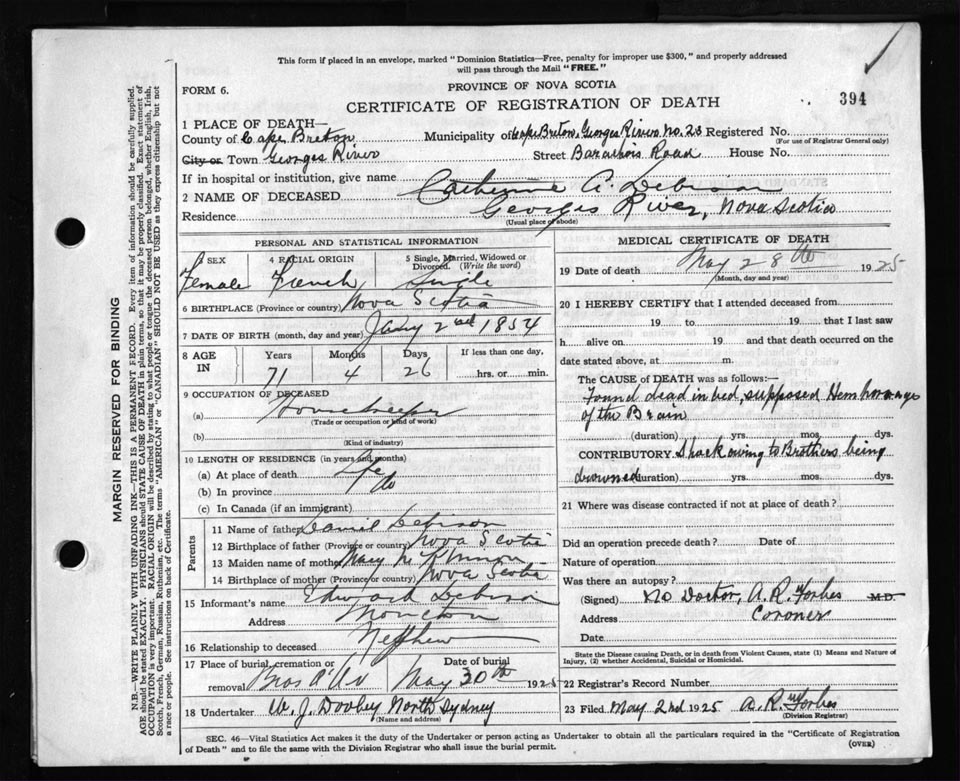 This form if placed in an envelope, marked "Dominion Statistics—Free, penalty for improper use $300," and properly addressed
will pass through the Mail "FREE."
FORM 6.
PROVINCE OF NOVA SCOTIA
CERTIFICATE OF REGISTRATION OF DEATH
394
1 PLACE OF DEATH—
County of Cape Breton Municipality of Cape Breton, Georges River No. 23 Registered No.
(For use of Registrar General only)
City or Town Georges River Street Barachois Road House No.
If in hospital or institution, give name
2 NAME OF DECEASED Catherine A. Debison
Residence Georges River, Nova Scotia
(Usual place of abode)
PERSONAL AND STATISTICAL INFORMATION
3 SEX 4 RACIAL ORIGIN 5 Single, Married, Widowed or Divorced. (Write the word)
Female French Single
6 BIRTHPLACE (Province or country) Nova Scotia
7 DATE OF BIRTH (month, day and year) Jany 2nd 1854
8 AGE IN Years Months Days If less than one day,
71 4 26 hrs. or min.
9 OCCUPATION OF DECEASED
(a) Housekeeper
(Trade or occupation or kind of work)
(b)
(Kind of industry)
10 LENGTH OF RESIDENCE (in years and months)
(a) At place of death Life
(b) In province do
(c) In Canada (if an immigrant)
Parents
11 Name of father Daniel Debison
12 Birthplace of father (Province or country) Nova Scotia
13 Maiden name of mother Mary
14 Birthplace of mother (Province or country) Nova Scotia
15 Informant's name Edward Debison
Address Moncton
16 Relationship to deceased Nephew
17 Place of burial, cremation or removal Bras d'Or Date of burial May 30th 1925
18 Undertaker W. J. Dooley North Sydney
(Name and address)
MEDICAL CERTIFICATE OF DEATH
19 Date of death May 28th 1925
(Month, day and year)
20 I HEREBY CERTIFY that I attended deceased from
19 to 19 that I last saw
h alive on 19 and that death occurred on the
date stated above, at m.
The CAUSE OF DEATH was as follows:—
Found dead in bed, supposed Hemhorrage
of the Brain
(duration) yrs. mos. dys.
CONTRIBUTORY. Shock owing to Brothers being
drowned (duration) yrs. mos. dys.
21 Where was disease contracted if not at place of death?
Did an operation precede death? Date of
Nature of operation
Was there an autopsy?
(Signed) No Doctor, A. R. Forbes M.D.
Address Coroner
Date
State the Disease causing Death, or in death from Violent Causes, state (1) Means and Nature of
Injury, (2) whether Accidental, Suicidal or Homicidal.
22 Registrar's Record Number
23 Filed May 2nd 1925 A. R. Forbes
(Division Registrar)
SEC. 46—Vital Statistics Act makes it the duty of the Undertaker or person acting as Undertaker to obtain all the particulars required in the "Certificate of Registration
of Death" and to file the same with the Division Registrar who shall issue the burial permit.
(OVER)
MARGIN RESERVED FOR BINDING
N.B.—WRITE PLAINLY WITH UNFADING INK—THIS IS A PERMANENT RECORD. Every item of information should be carefully supplied.
AGE should be stated EXACTLY. PHYSICIANS should STATE CAUSE OF DEATH in plain terms, so that it may be properly classified. Exact statement of
OCCUPATION is very important. RACIAL ORIGIN will be described by stating to what people or tongue the deceased person belonged, whether English, Irish,
Scotch, French, German, Russian, Ruthenian, etc. The terms "AMERICAN" or "CANADIAN" SHOULD NOT BE USED as they express citizenship but not
a race or people. See instructions on back of Certificate.